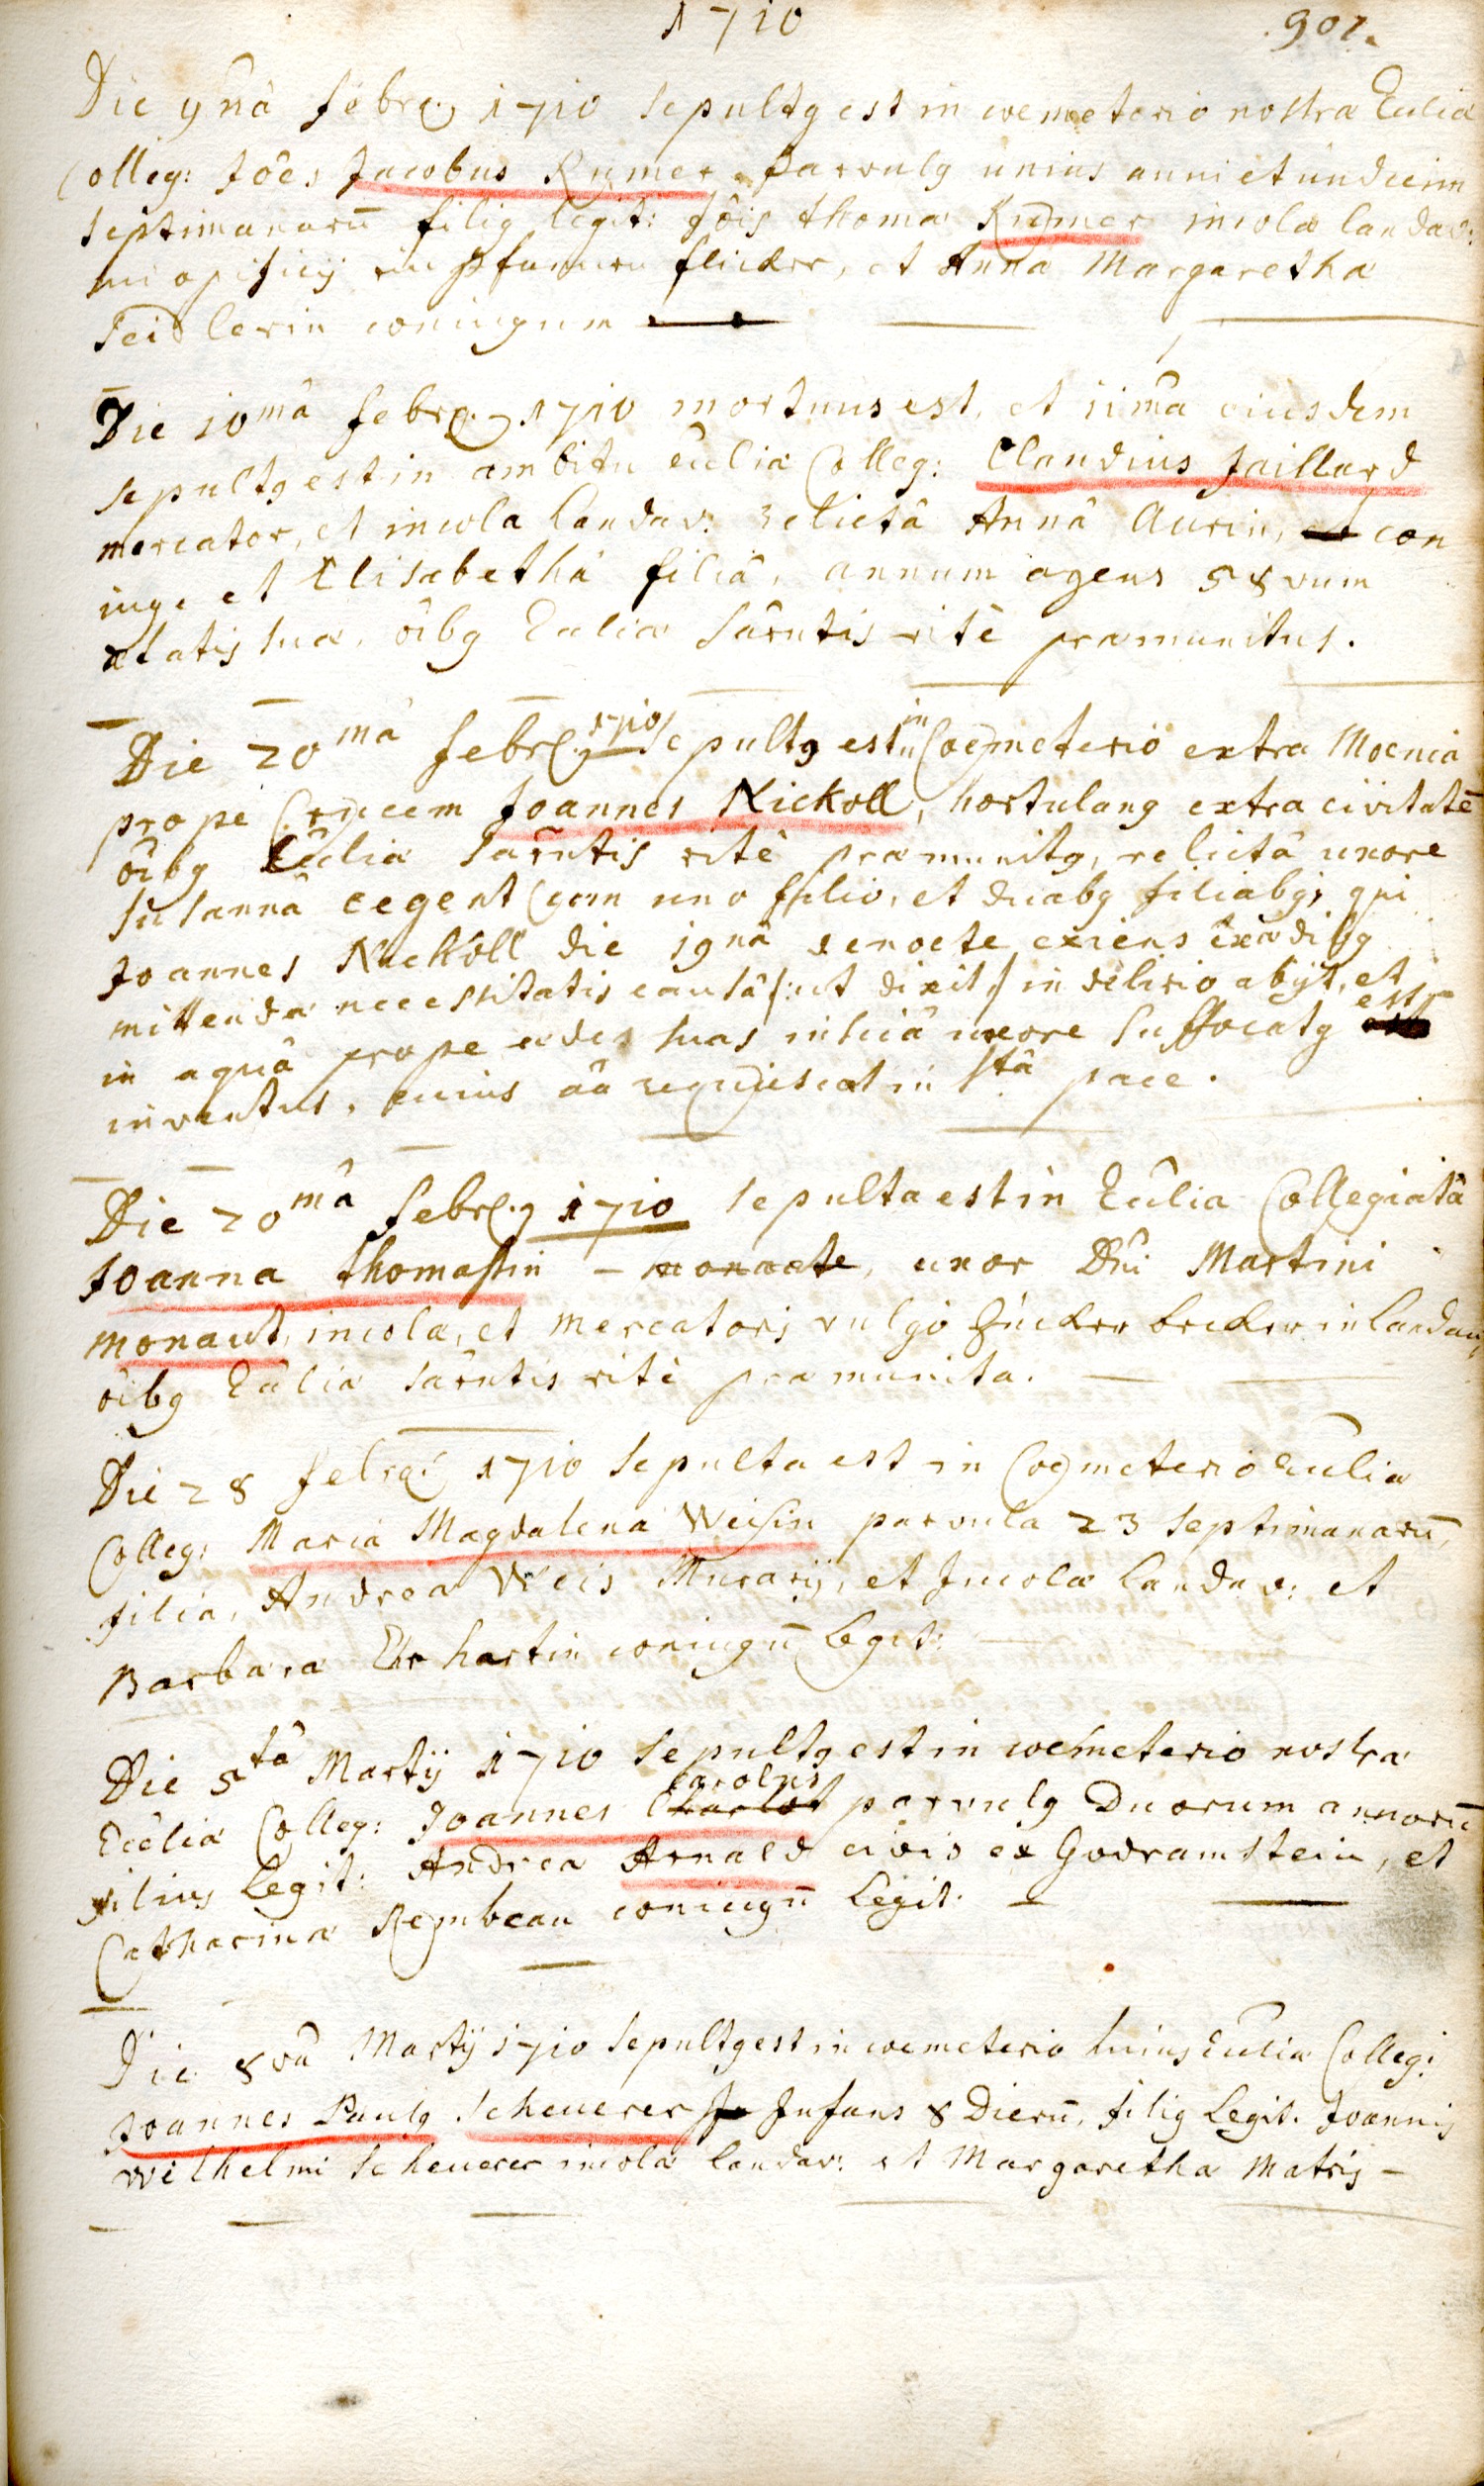 1710 907.
Die 9nâ febrẽ 1710 sepultq est in coemeterio nostræ Eccliæ
Colleg: Jôes Jacobus Rymer parvulq unius anni et undecim
septimanarū filiq legit: Jôis thomæ Rymer incolæ landav:
sui opificij ein pfannen flicker, et Anna Margaretha
Seidlerin coniugum
Die 10mâ febrẽ 1710 mortuus est, et 11mâ eiusdem
sepultq est in ambitu eccliæ Colleg: Claudius Jaillard
mercator, et incola landav: relictâ Annâ Aurin, con
iuge et Elisabethâ filiâ, annum agens 58vum
ætatis suæ, ôibq Ecliæ Sâcntis ritè præmunitus.
Die 20mâ febrẽ 1710 sepultq est in Coemeterio extra Moenia
prope Crucem Joannes Nickoll, hortulanq extra civitatē
ôibq Eccliæ Sâcntis ritè præmunitq, relictâ uxore
Susannâ cegent cum uno filio, et duabq filiabq, qui
Joannes Nickoll die 19nâ denocte exiens exædibq
mittenda necessitatis causâ /:ut dixit/ in delirio abijt, et
in aquâ prope ædes suas insciâ uxore suffocatq est
inventus, cuius aâ requiescat in Stâ pace.
Die 20mâ febrẽ 1710 sepulta est in Eccliâ Collegiatâ
Joanna thomassin – monacte, uxor Dni Martini
monaut, incolæ, et mercatoris vulgo Zucker becker in landau,
ôibq Eccliæ Sâcntis ritè præmunita.
Die 28 febrẽ 1710 sepulta est in Coemeterio Eccliæ
Colleg: Maria Magdalena Weisin parvula 23 septimanarū,
filia, Andreæ Weis Murarij, et Incolæ landav: et
Barbara Ehrhartin coniugū legit:
Die 5tâ Martij 1710 sepultq est in coemeterio nostræ
Eccliæ Colleg: Joannes Charlot Carolus parvulq Duorum annorū
filius legit: Andreæ Arnald civis ex Godramstein, et
Catharinæ Rembeau coniugū legit.
Die 8vâ Martij 1710 sepultq est in coemeterio huius Eccliæ Colleg:
Joannes Paulq Scheuerer Jo Infans 8 Dierū, filiq legit. Joannis
Wilhelmi Scheuerer incolæ landav: et Margaretha Matris –